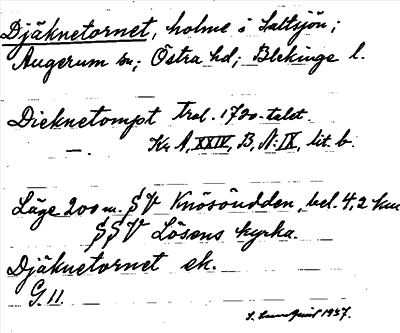 Djäknetornet, holme i Saltsjön;
Augerum sn; Östra hd; Blekinge l.
Diecknetompt trol. 1700-talet.
— . Kr. A, XXIV, B, N: IX, lit. b.
Läge 200 m. S V Knösöudden, bel. 4,2 km
S S V Lösens kyrka.
Djäknetornet ek.
G. 11.
1937.